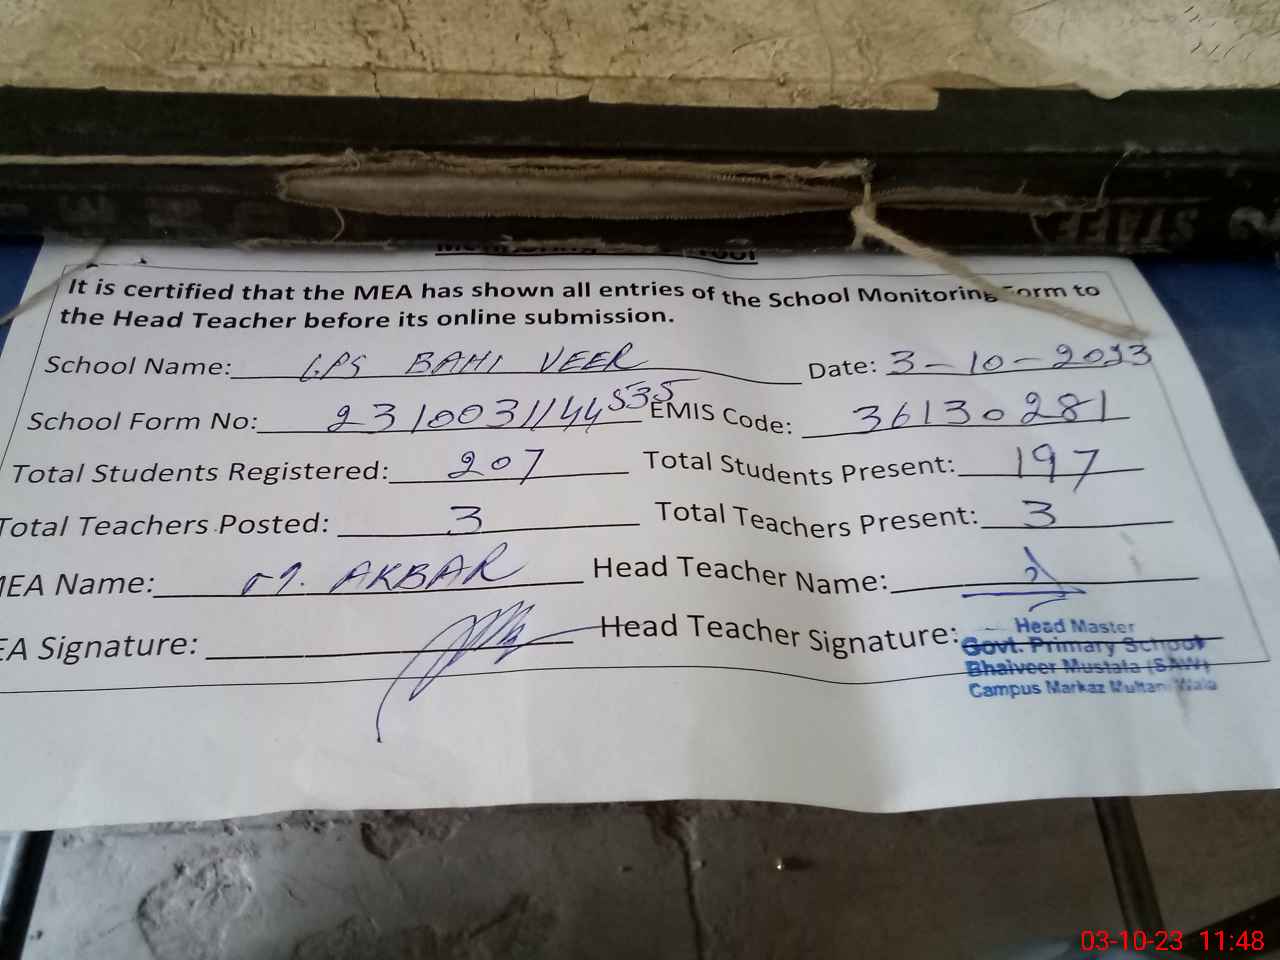 STAFF
It is certified that the MEA has shown all entries of the School Monitoring Form to
the Head Teacher before its online submission.
School Name: GPS BAHI VEER Date: 3-10-2023
School Form No: 2310031144535 EMIS Code: 36130281
Total Students Registered: 207 Total Students Present: 197
Total Teachers Posted: 3 Total Teachers Present: 3
MEA Name: M. AKBAR Head Teacher Name:
EA Signature: Head Teacher Signature:
Head Master
Govt. Primary School
Bhaiveer Mustala (SAW)
Campus Markaz Multani Wala
03-10-23 11:48